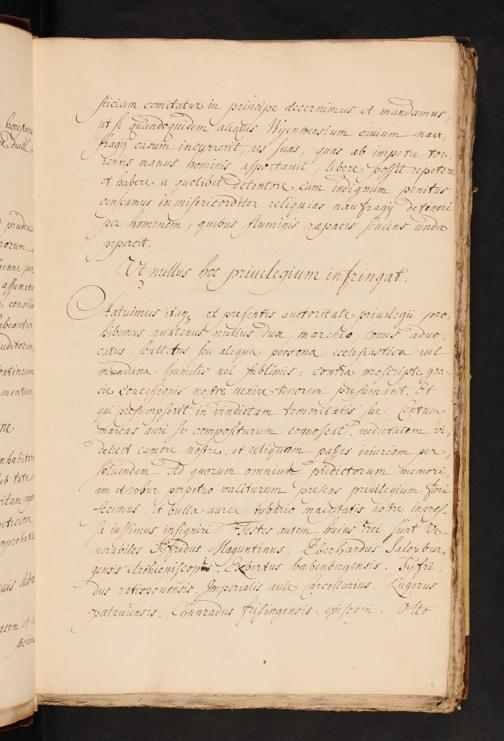 sticiam comitatur in principe decernimus et mandamus,
ut si quandoquidem aliquis Wyennensium civium nau,
fragij casum incurrerit, res suas, quas ab impetu tor-
rentis manus hominis asportauit, libere possit repetere
et habere a quolibet detentore cum indignum penitus
censeamus in misericorditer reliquias naufragij detineri
per hominem, quibus fluminis rapacis seuiens unda
pepercit.
Ut nullus hoc privilegium infringat.
Statuimus itaq et presentis auctoritate privilegii pro
hibemus quatenus nullus dux, marchio, comes aduo
catus, scultetus seu aliqua persona ecclesiastica uel
mundana humilis uel sublimis: contra prescripte gra
cie concessionis nostre uenire tenorem presumant. Et
qui presumpserit in vindictam temeritatis sue Centum
marcas auri se compositurum cognoscat medietatem vi
delicet camere nostre, et reliquam passis iniuriam per
soluendam. Ad quorum omnium predictorum memori
am et robur perpetuo valiturum presens privilegium fieri
fecimus, et bulla aurea typario maiestatis nostre impres
sa iussimus insigniri. Testes autem huius rei sunt Ve-
nerabiles Syfridus Maguntinus, Eberhardus Salczbur
gensis Archiepiscopi Ekbertus babenbergensis. Syfri
dus ratisponensis Imperialis aule Cancellarius, Rugerus
patauiensis. Chunradus frisingensis. episcopi. Otto